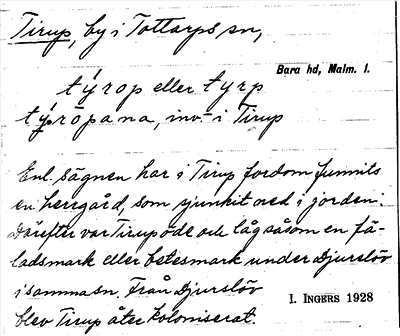 Tirup, by i Tottarps sn,
Bara hd, Malm. l.
týrop eller tyrp
týropana, inv. i Tirup
Enl. sägnen har i Tirup fordom funnits
en herrgård, som sjunkit ned i jorden.
Därefter var Tirup öde och låg såsom en fä-
ladsmark eller betesmark under Djurslöv
i samma sn. Från Djurslöv
blev Tirup åter koloniserat.
I. INGERS 1928